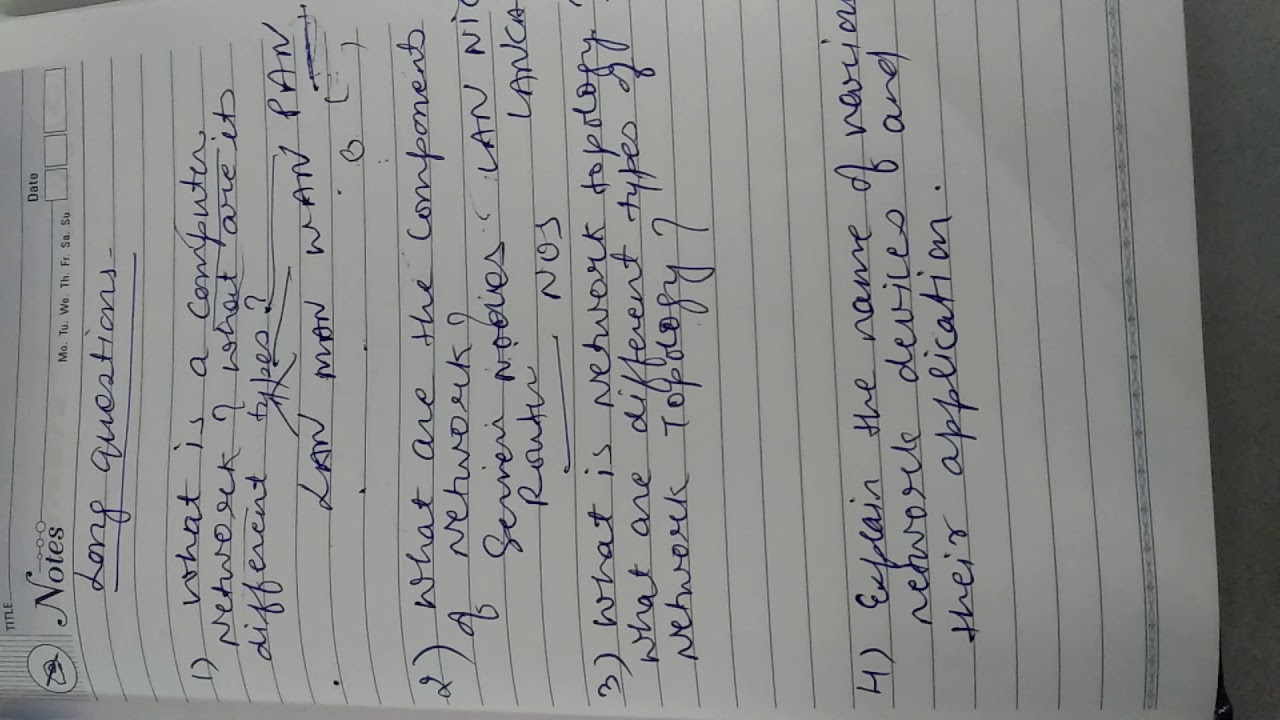 TITLE
Notes
Mo. Tu. We. Th. Fr. Sa. Su
Date
Long questions-
1) What is a computer
Network? What are its
different types?
LAN MAN WAN PAN
2) What are the components
of Network?
Server nodes LAN NIC
Router NOS LANCA
3) What is Network topology?
What are different types of
Network Topology?
4) Explain the name of various
network devices and
their application.